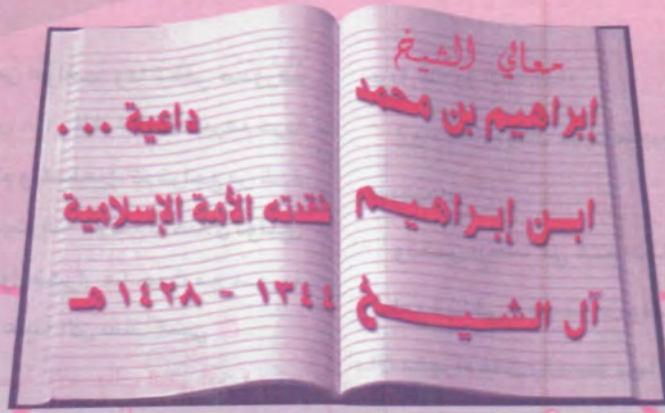 معالي الشيخ
إبراهيم بن محمد
ابن إبراهيم
آل الشيخ
داعية ...
فقدته الأمة الإسلامية
١٣٤٤ - ١٤٢٨ هـ